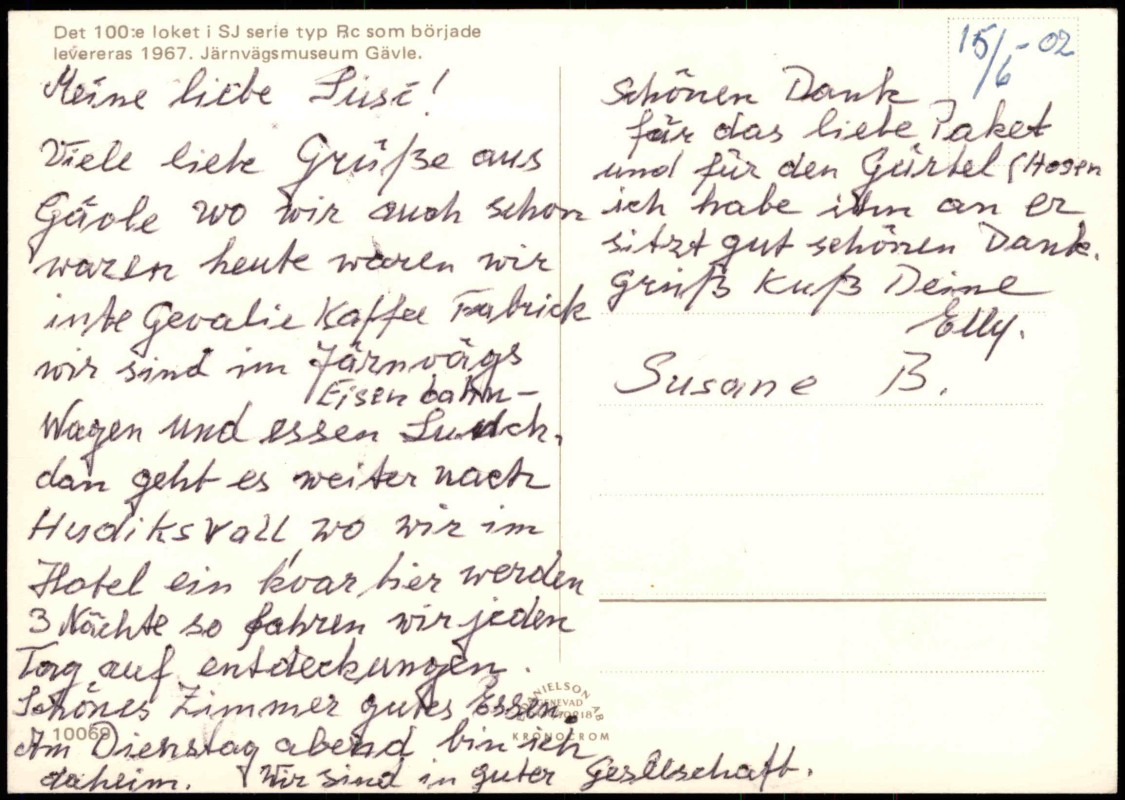 Det 100:e loket i SJ serie typ Rc som började
levereras 1967. Järnvägsmuseum Gävle.
15/6-02
Meine liebe Susi!
Viele liebe Grüße aus
Gävle wo wir auch schon
waren heute waren wir
inte Gevalie Kaffee Fabrick
wir sind im Järnvägs
Eisenbahn-
Wagen und essen Lunch.
dan geht es weiter nach
Hudiksvall, wo wir im
Hotel ein kvartier werden
3 Nächte so fahren wir jeden
Tag auf entdeckungen.
Schönes Zimmer gutes Essen.
Am Dienstag abend bin ich
daheim. Wir sind in guter Gesellschaft.
Schönen Dank
für das liebe Paket
und für den Gürtel (Hosen
ich habe ihn an er
sitzt gut schönen Dank.
Gruß Kuß Deine
Elly.
Susane B.
10069
DANIELSON
AB
KRONOCROM